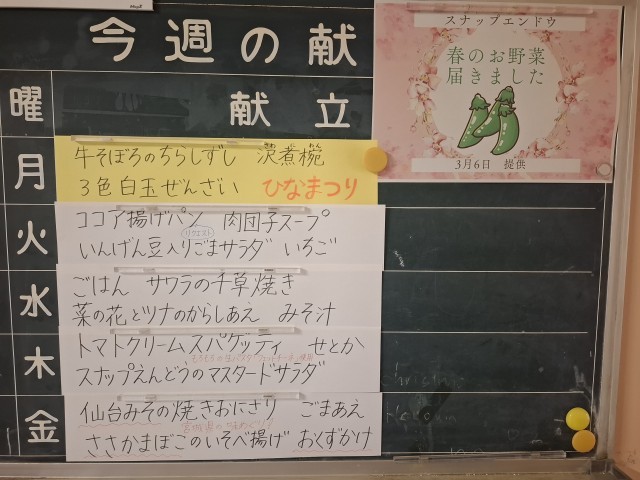 今週の献
曜 献立
月 牛そぼろのちらしずし 沢煮椀
3色白玉ぜんざい ひなまつり
火 ココア揚げパン 肉団子スープ
リクエスト
いんげん豆入りごまサラダ いちご
水 ごはん サワラの千草焼き
菜の花とツナのからしあえ みそ汁
木 トマトクリームスパゲッティ せとか
スナップえんどうのマスタードサラダ
金 仙台みその焼きおにぎり ごまあえ
ささかまぼこのいそべ揚げ おくずかけ
スナップエンドウ
春のお野菜
届きました
3月6日 提供